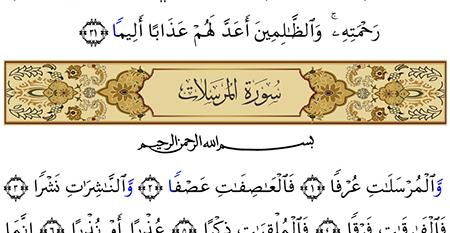 رَحْمَتِهِۦۚ وَٱلظَّٰلِمِينَ أَعَدَّ لَهُمْ عَذَابًا أَلِيمًا ﴿٣١﴾
سُورَةُ المُرْسَلَاتِ
بسم الله الرحمن الرحيم
وَٱلْمُرْسَلَٰتِ عُرْفًا ﴿١﴾ فَٱلْعَٰصِفَٰتِ عَصْفًا ﴿٢﴾ وَٱلنَّٰشِرَٰتِ نَشْرًا ﴿٣﴾
فَٱلْفَٰرِقَٰتِ فَرْقًا ﴿٤﴾ فَٱلْمُلْقِيَٰتِ ذِكْرًا ﴿٥﴾ عُذْرًا أَوْ نُذْرًا ﴿٦﴾ إِنَّمَا